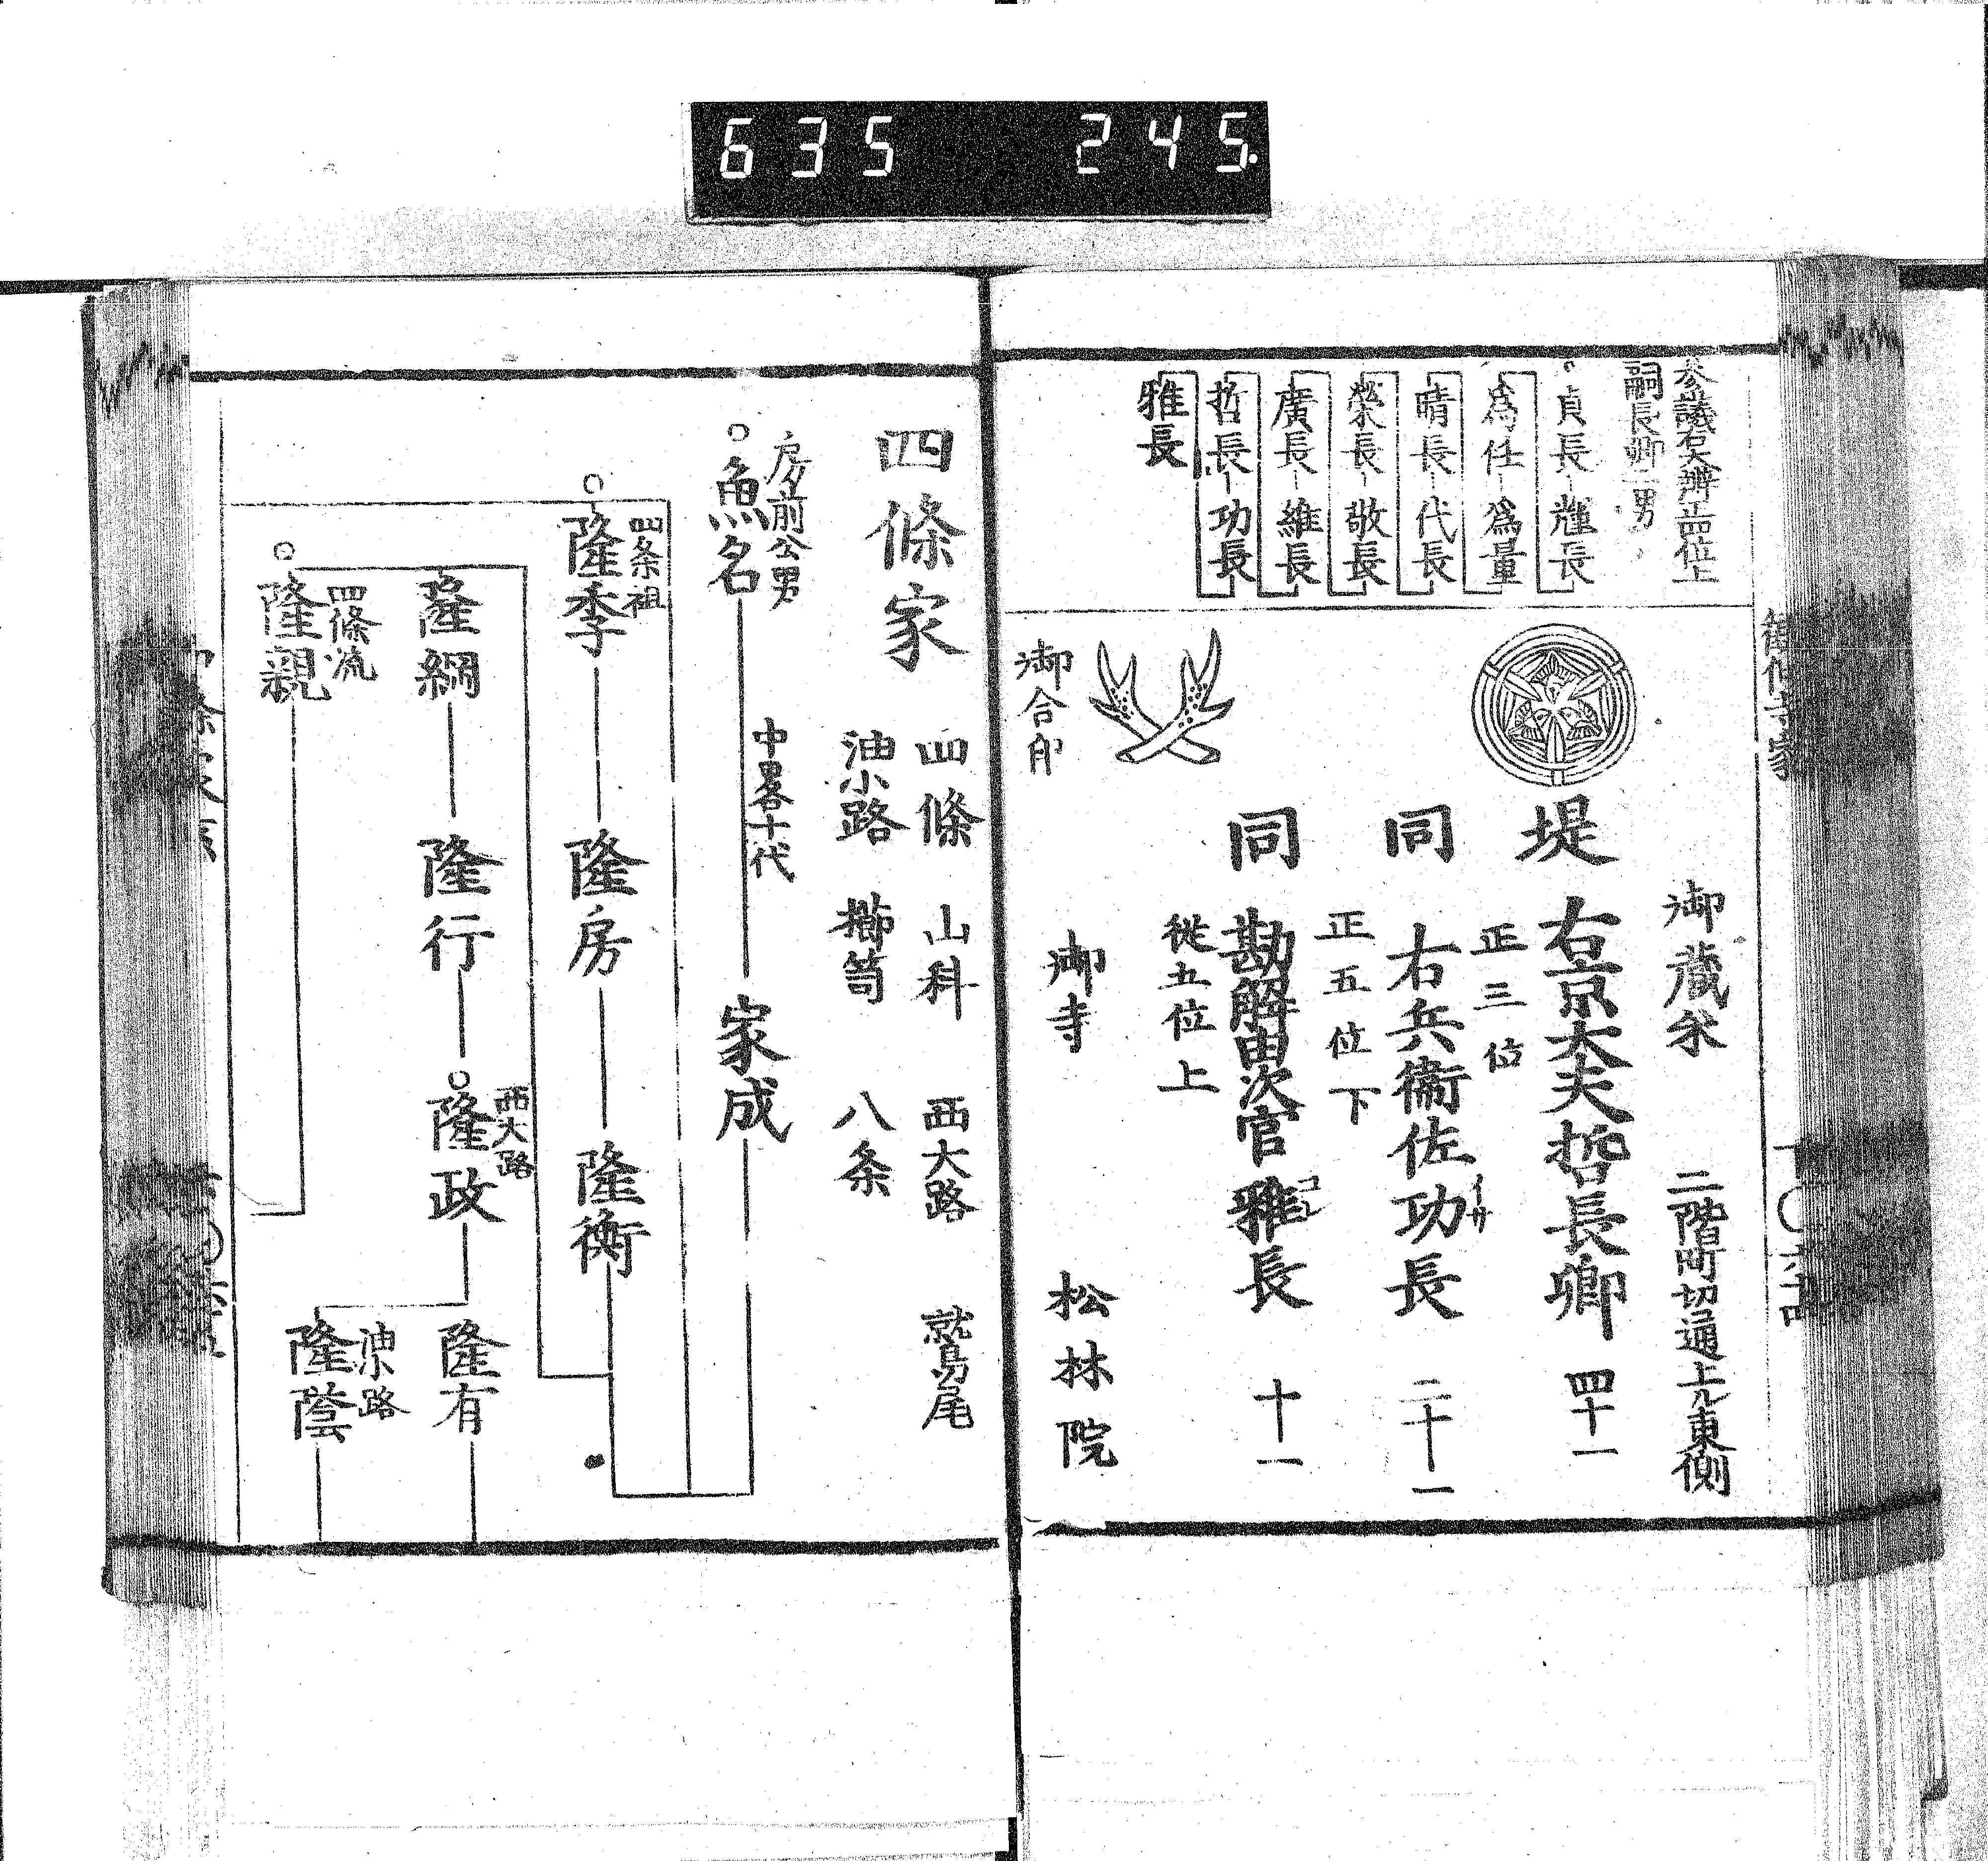 635 245.
参議右大辨正四位上
嗣長卿二男
貞長 輝長
為任 為量
晴長 代長
榮長 敬長
廣長 維長
哲長 功長
雅長
御蔵米 二階町切通上ル東側
堤 右京大夫哲長卿 四十一
正三位
同 右兵衛佐功長 二十一
イサ
正五位下
同 勘解由次官雅長 十一
コレ
従五位上
御合印
御寺 松林院
四條家
四條 山科 西大路 鷲尾
油小路 櫛笥 八条
房前公男
魚名 家成
中畧十代
四条祖
隆季 隆房 隆衡
隆綱 隆行 隆政 隆有
西大路
油小路
隆蔭
四條流
隆親